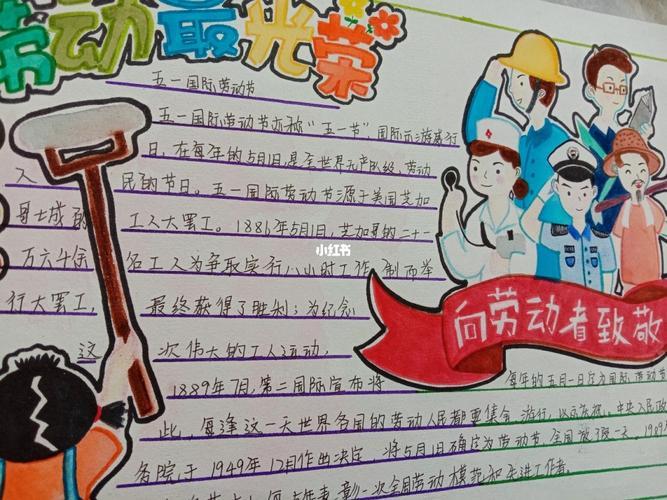 劳动最光荣
五一国际劳动节
五一国际劳动节亦称"五一节",国际示游威行
日,在每年的5月1日,是全世界无产阶级、劳动
人民的节日。五一国际劳动节源于美国芝加
哥士城的工人大罢工。1886年5月1日,芝加哥的二十一
万六千余名工人为争取实行八小时工作制而举
行大罢工,最终获得了胜利;为纪念
这次伟大的工人运动,
1889年7月,第二国际宣布将每年的五月一日定为国际劳动节
此,每逢这一天世界各国的劳动人民都要集会,游行,以示庆祝.中央人民政
务院于1949年12月作出决定将5月1日确定为劳动节.全国放假一天.1989
次全国劳动模范和先进工作者
向劳动者致敬
小红书